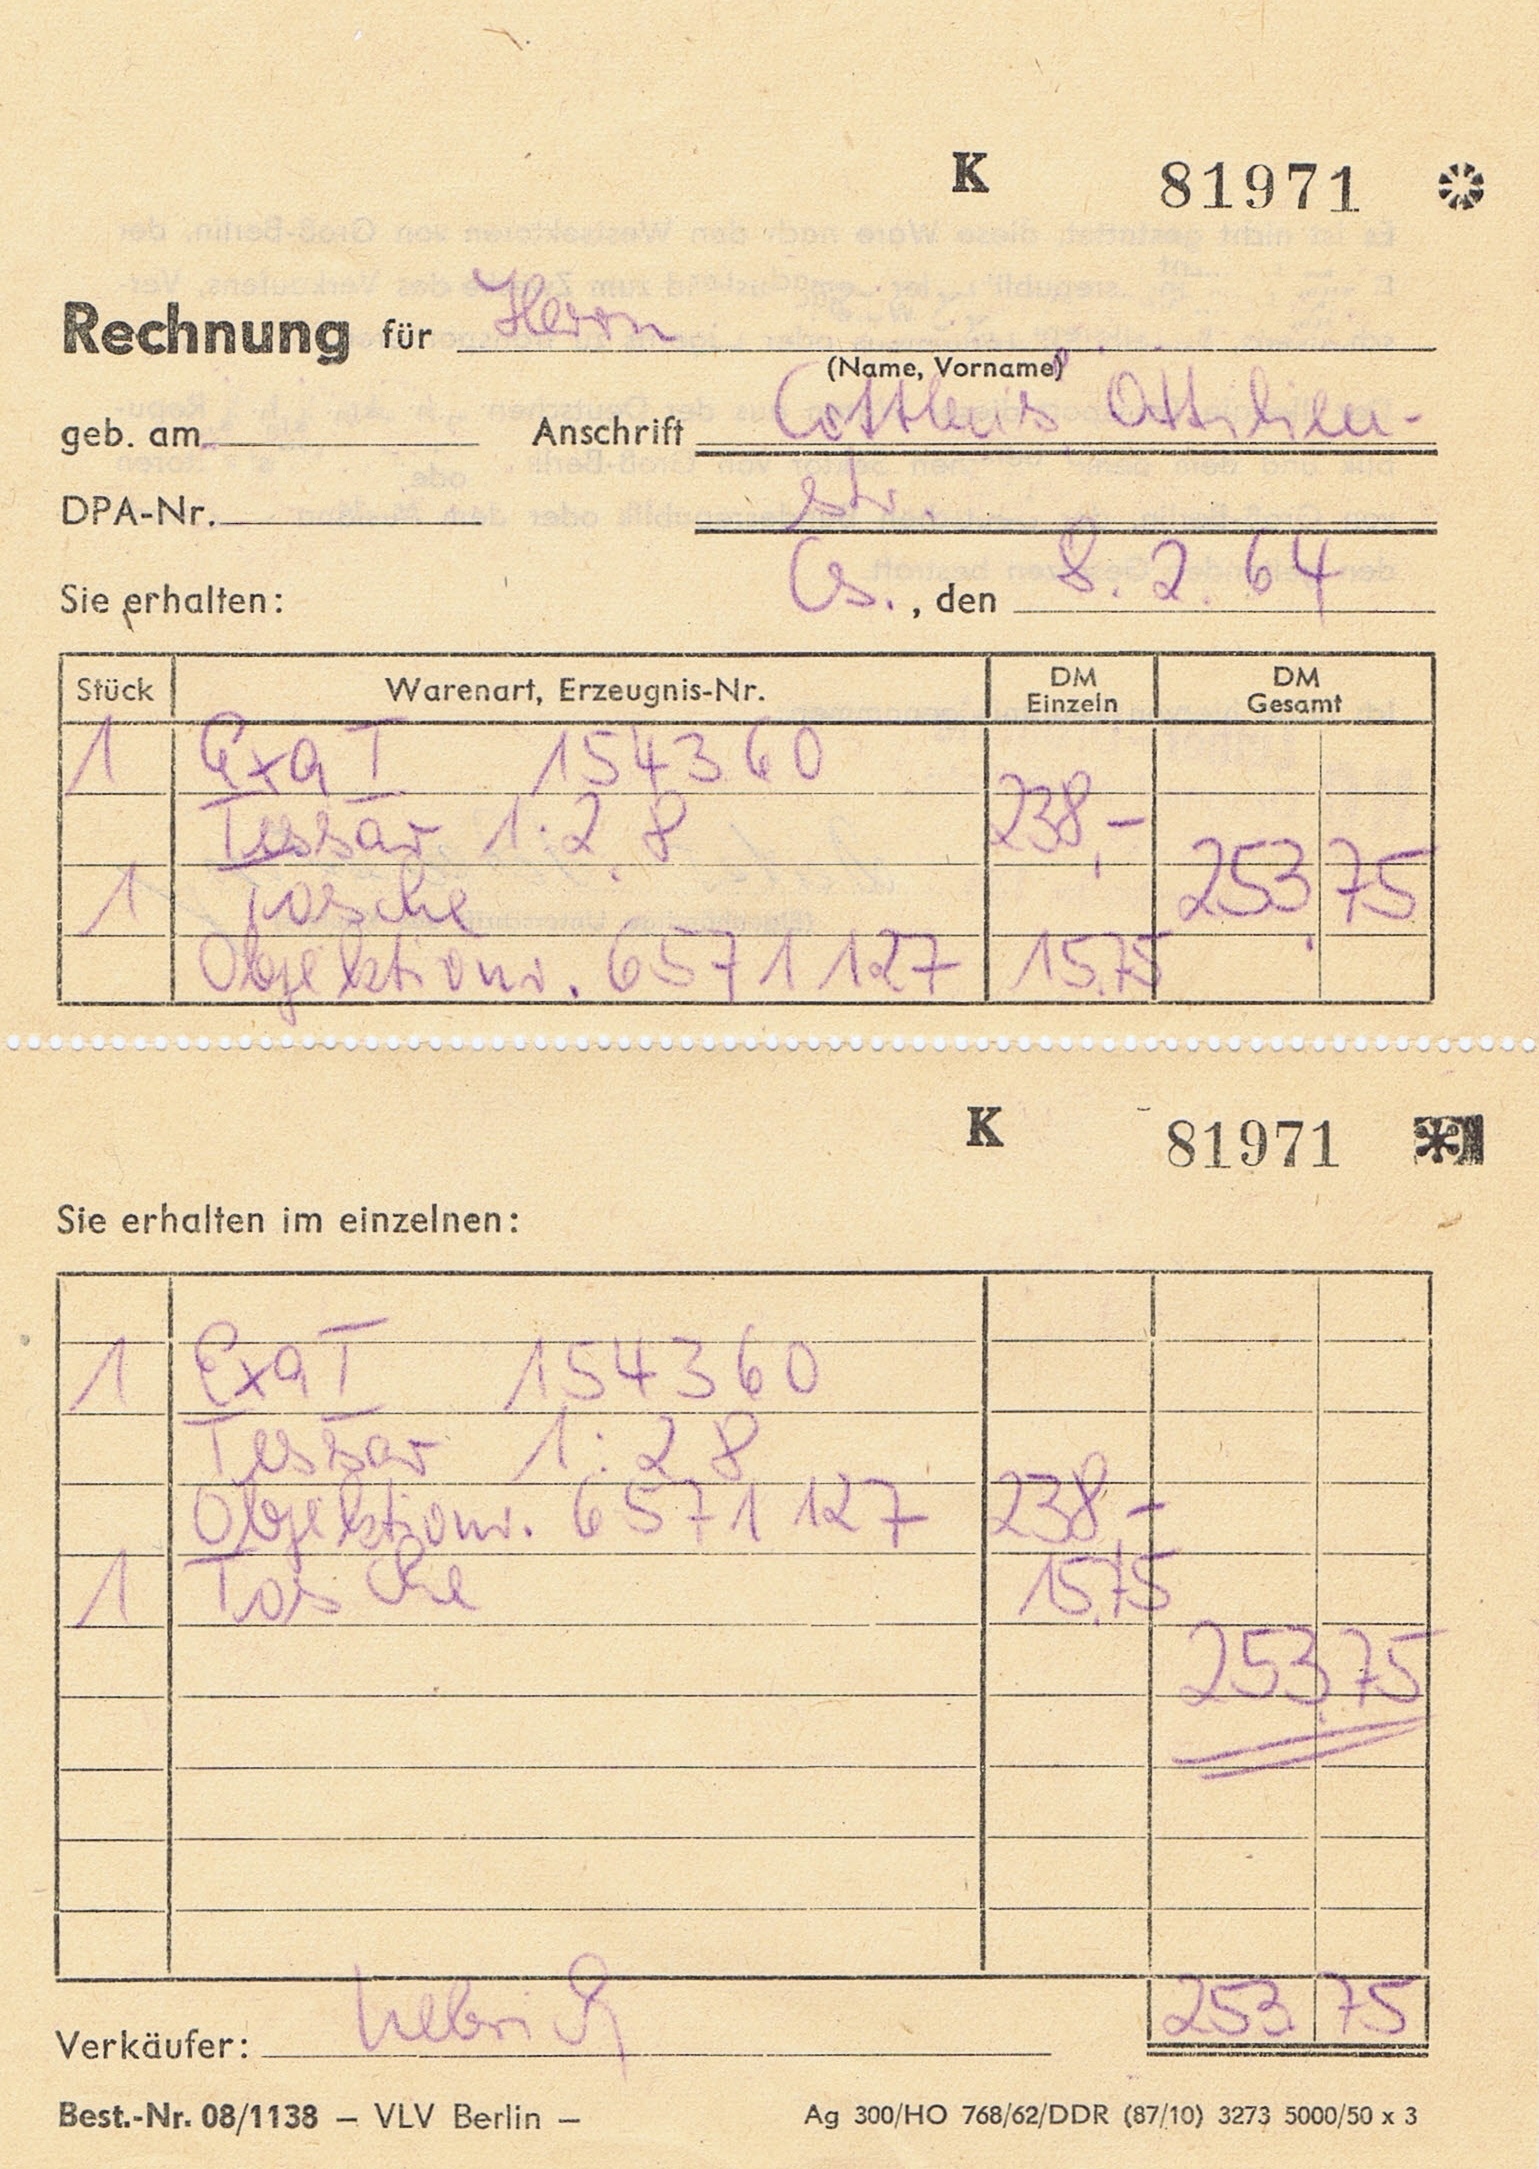 K 81971
Rechnung für Herrn
(Name, Vorname)
geb. am Anschrift Cottbus Ottilien-
DPA-Nr. str.
Sie erhalten: Cs., den 8. 2. 64
Stück Warenart, Erzeugnis-Nr. DM Einzeln DM Gesamt
1 Exa I 154360
Tessar 1:2 8 238,-
1 Tasche 253.75
Objektivnr. 6571127 15.75
K 81971
Sie erhalten im einzelnen:
1 Exa I 154360
Tessar 1:2 8
Objektivnr. 6571127 238,-
1 Tasche 15.75
253.75
253.75
Verkäufer:
Best.-Nr. 08/1138 – VLV Berlin – Ag 300/HO 768/62/DDR (87/10) 3273 5000/50 x 3